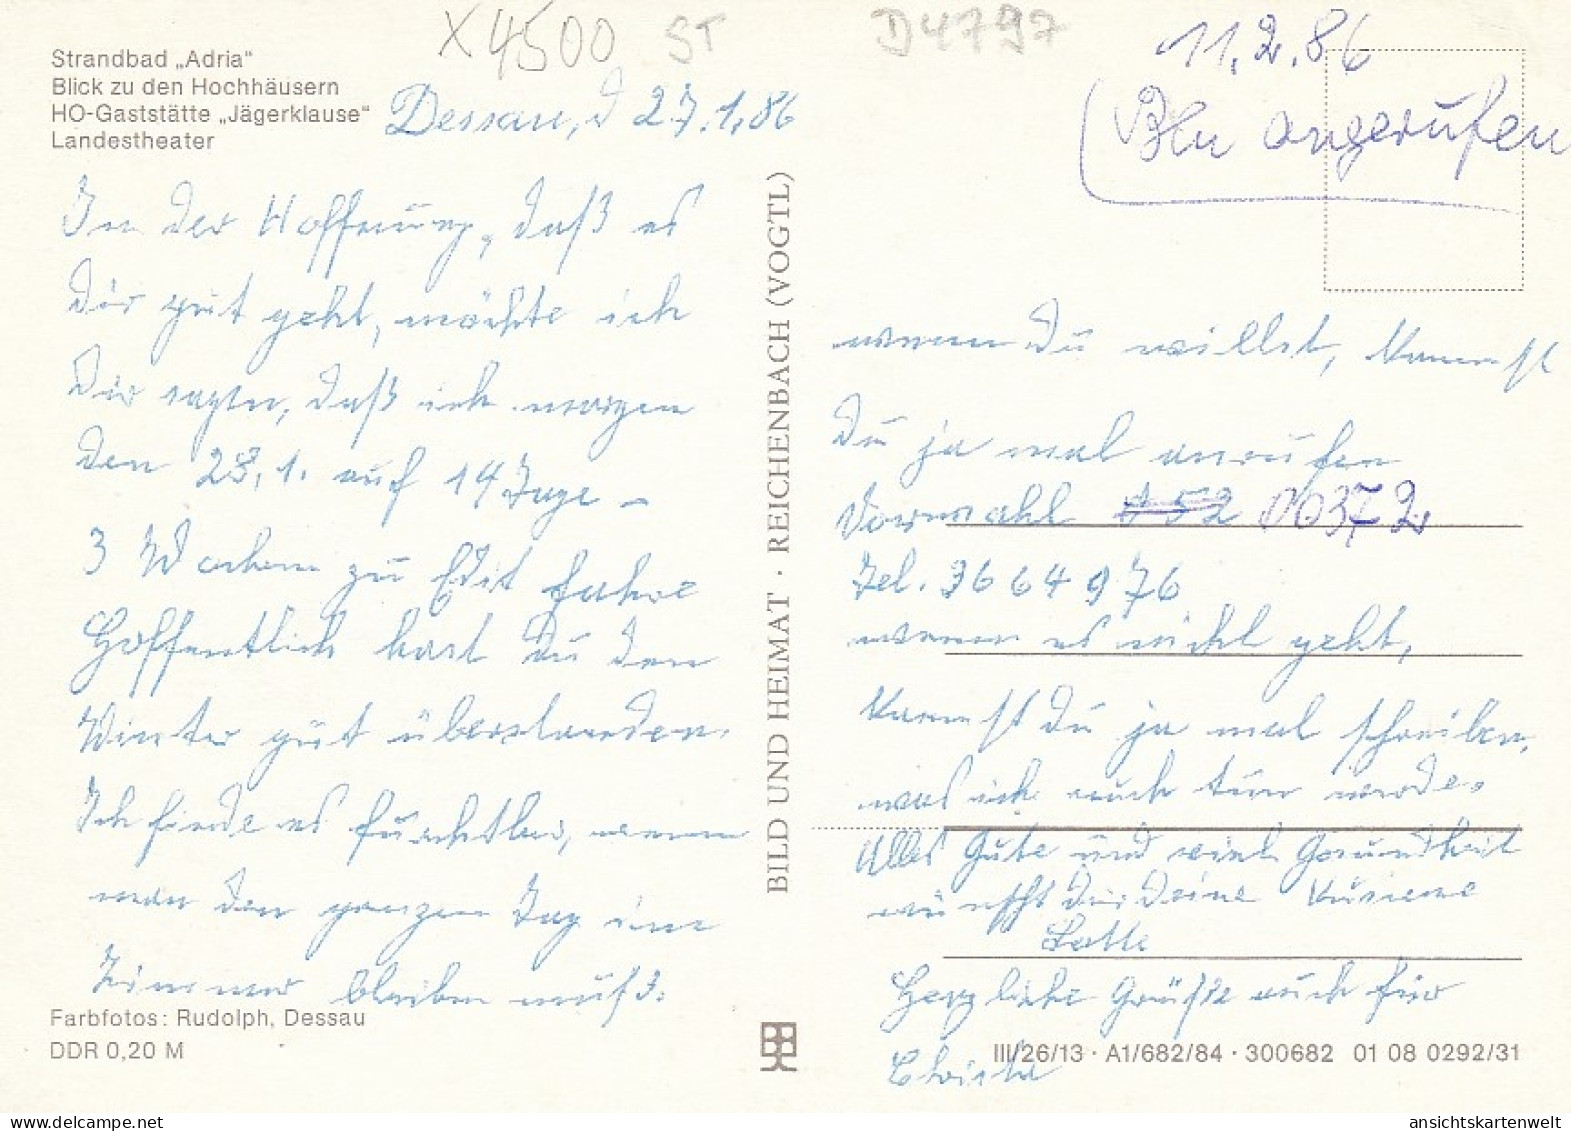 X4500 ST
D4797
11.2.86
(Bln angerufen
Strandbad „Adria“
Blick zu den Hochhäusern
HO-Gaststätte „Jägerklause“
Landestheater
Dessau, d 27.1.86
In der Hoffnung, daß es
Dir gut geht, möchte ich
Dir sagen, daß ich morgen
den 28.1. auf 14 Tage –
3 Wochen zu Edit fahre
Hoffentlich hast Du den
Winter gut überstanden.
Ich finde es furchtbar, wenn
man den ganzen Tag im
Zimmer bleiben muß.
Farbfotos: Rudolph, Dessau
DDR 0,20 M
BILD UND HEIMAT · REICHENBACH (VOGTL)
wenn Du willst, kannst
Du ja mal anrufen
Vorwahl 00372
Tel. 3664976
wenn es nicht geht,
kannst Du ja mal schreiben,
was ich auch tun werde.
Alles Gute und viel Gesundheit
wünscht Dir Deine Kusine
Lotte
Herzliche Grüße auch für
Christa
III/26/13 · A1/682/84 · 300682 01 08 0292/31
ansichtskartenwelt.com